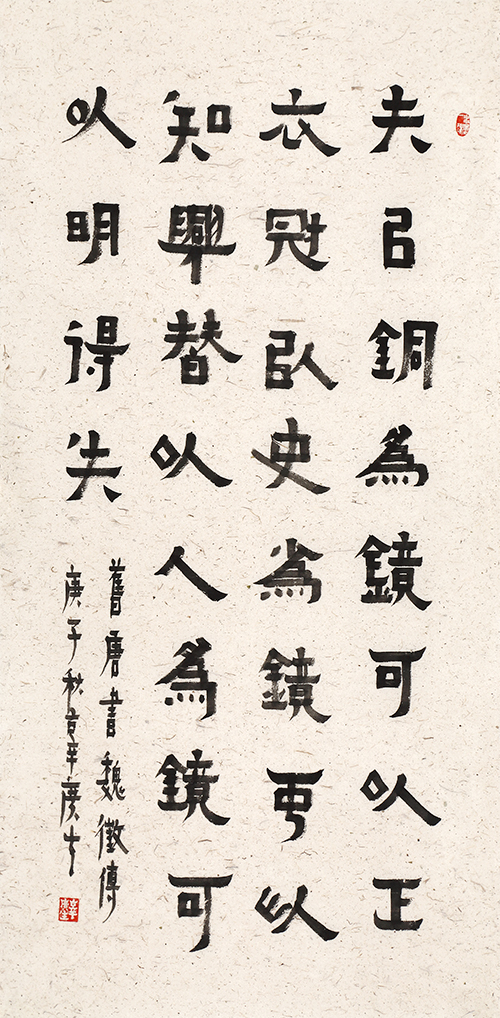 夫以銅為鏡可以正
衣冠以史為鏡可以
知興替以人為鏡可
以明得失
舊唐書魏徵傳
庚子秋